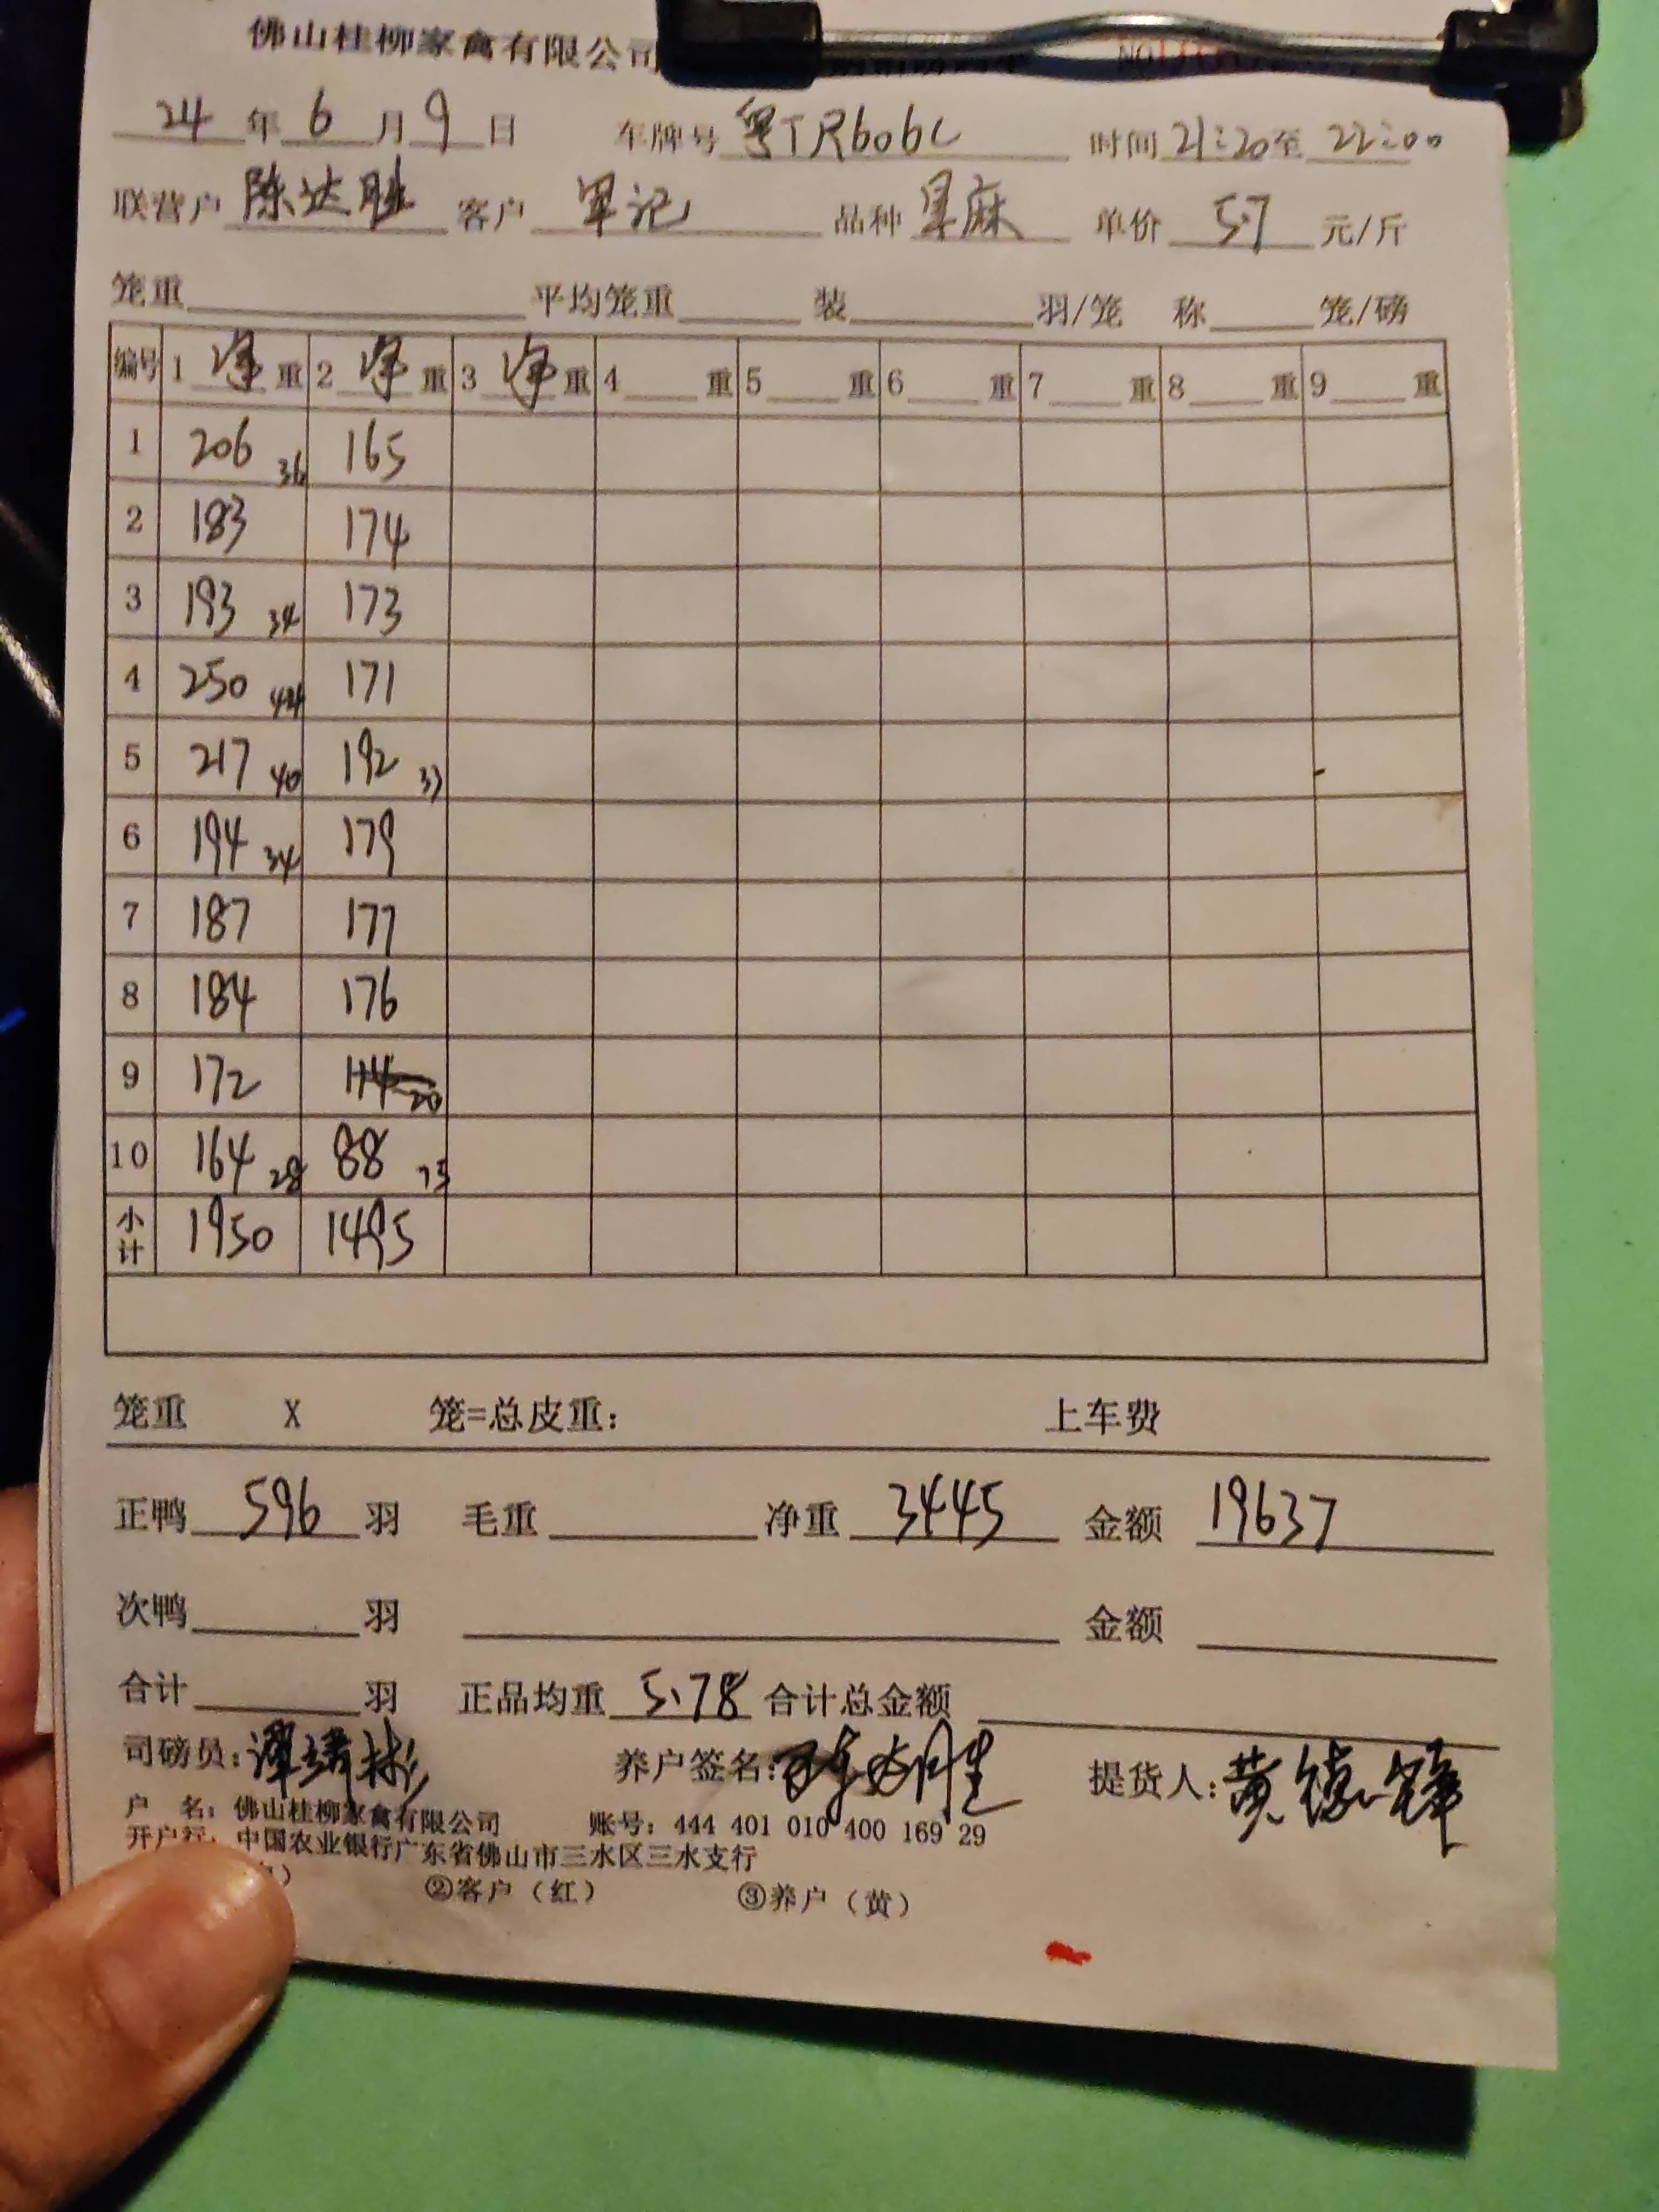 佛山桂柳家禽有限公司
24 年 6 月 9 日 车牌号 粤TR606L 时间 21:20 至 22:00
联营户 陈达胜 客户 军记 品种 黑麻 单价 5.7 元/斤
笼重 平均笼重 装 羽/笼 称 笼/磅
编号 1 净 重 2 净 重 3 净 重 4 重 5 重 6 重 7 重 8 重 9 重
1 206 36 165
2 183 174
3 193 34 173
4 250 44 171
5 217 40 192 33
6 194 34 179
7 187 177
8 184 176
9 172 20
10 164 28 88 15
小计 1950 1495
笼重 X 笼=总皮重: 上车费
正鸭 596 羽 毛重 净重 3445 金额 19637
次鸭 羽 金额
合计 羽 正品均重 5.78 合计总金额
司磅员: 养户签名: 陈达胜 提货人: 黄德锋
户 名: 佛山桂柳家禽有限公司 账号: 444 401 010 400 169 29
开户行: 中国农业银行广东省佛山市三水区三水支行
②客户(红) ③养户(黄)